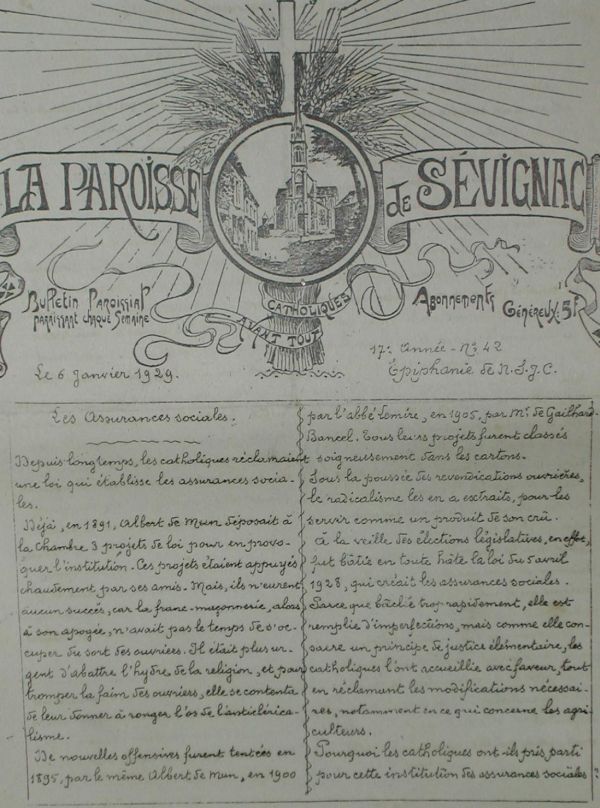 LA PAROISSE de SÉVIGNAC
Bulletin Paroissial
paraissant chaque Semaine
CATHOLIQUES
AVANT TOUT
Abonnements
Généreux: 5F
Le 6 Janvier 1929.
17e année - No 42
Épiphanie de N.S.J.C.
Les Assurances sociales.
Depuis longtemps, les catholiques réclamaient
une loi qui établisse les assurances socia-
les.
Déjà, en 1891, Albert de Mun déposait à
la Chambre 3 projets de loi pour en provo-
quer l'institution. Ces projets étaient appuyés
chaudement par ses amis. Mais, ils n'eurent
aucun succès, car la franc-maçonnerie, alors
à son apogée, n'avait pas le temps de s'oc-
cuper du sort des ouvriers. Il était plus ur-
gent d'abattre l'hydre de la religion, et pour
tromper la faim des ouvriers, elle se contenta
de leur donner à ronger l'os de l'anticlérica-
lisme.
De nouvelles offensives furent tentées en
1895, par le même Albert de Mun, en 1900
par l'abbé Lemire, en 1905, par Mr. de Gailhard
Bancel. Tous leurs projets furent classés
soigneusement dans les cartons.
Sous la poussée des revendications ouvrières,
le radicalisme les en a extraits, pour les
servir comme un produit de son crû.
À la veille des élections législatives, en effet,
fut bâtie en toute hâte la loi du 5 avril
1928, qui créait les assurances sociales.
Parce que bâclée trop rapidement, elle est
remplie d'imperfections, mais comme elle con-
sacre un principe de justice élémentaire, les
catholiques l'ont accueillie avec faveur, tout
en réclamant les modifications nécessai-
res, notamment en ce qui concerne les agri-
culteurs.
Pourquoi les catholiques ont-ils pris parti
pour cette institution des assurances sociales ?